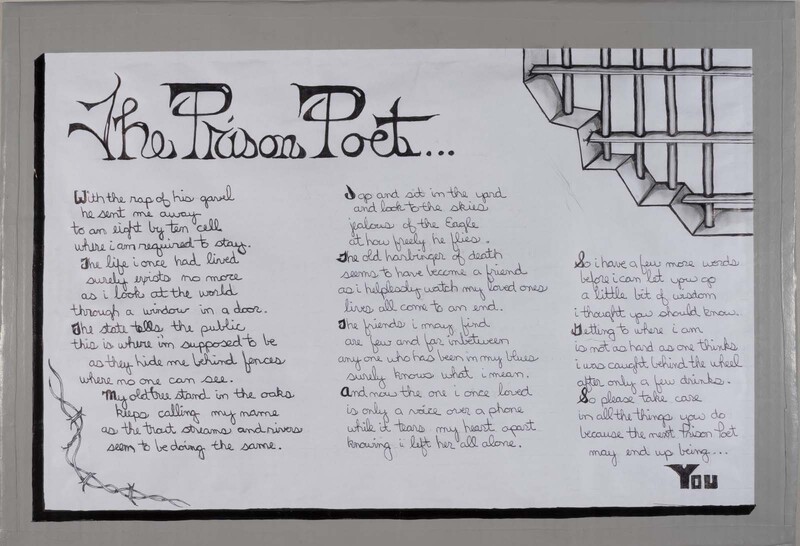 The Prison Poet...
With the rap of his gavel
he sent me away
to an eight by ten cell
where i am required to stay.
The life i once had lived
surely exists no more
as i look at the world
through a window in a door.
The state tells the public
this is where i'm supposed to be
as they hide me behind fences
where no one can see.
My old tree stand in the oaks
keeps calling my name
as the trout streams and rivers
seem to be doing the same.
I go and sit in the yard
and look to the skies
jealous of the Eagle
at how freely he flies.
The old harbinger of death
seems to have become a friend
as i helplessly watch my loved ones
lives all come to an end.
The friends i may find
are few and far inbetween
any one who has been in my blues
surely knows what i mean.
And now the one i once loved
is only a voice over a phone
while it tears my heart apart
knowing i left her all alone.
So i have a few more words
before i can let you go
a little bit of wisdom
i thought you should know.
Getting to where i am
is not as hard as one thinks
i was caught behind the wheel
after only a few drinks.
So please take care
in all the things you do
because the next Prison Poet
may end up being...
You